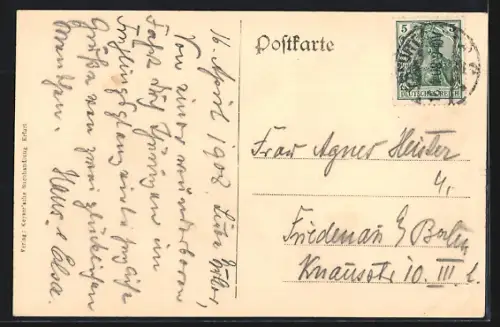 Postkarte
5
DEUTSCHES REICH
ERFURT
16. April 1908. Liebe
Von einer wunderbaren
Fahrt durch Thüringen im
Frühlingsglanz viele herzliche
Grüße von zwei glücklichen
Hans & Elsa.
Verlag: Keyser'sche Buchhandlung, Erfurt
Frau Agnes Heuter
Friedenau b/ Berlin
Knausstr. 10. III. l.